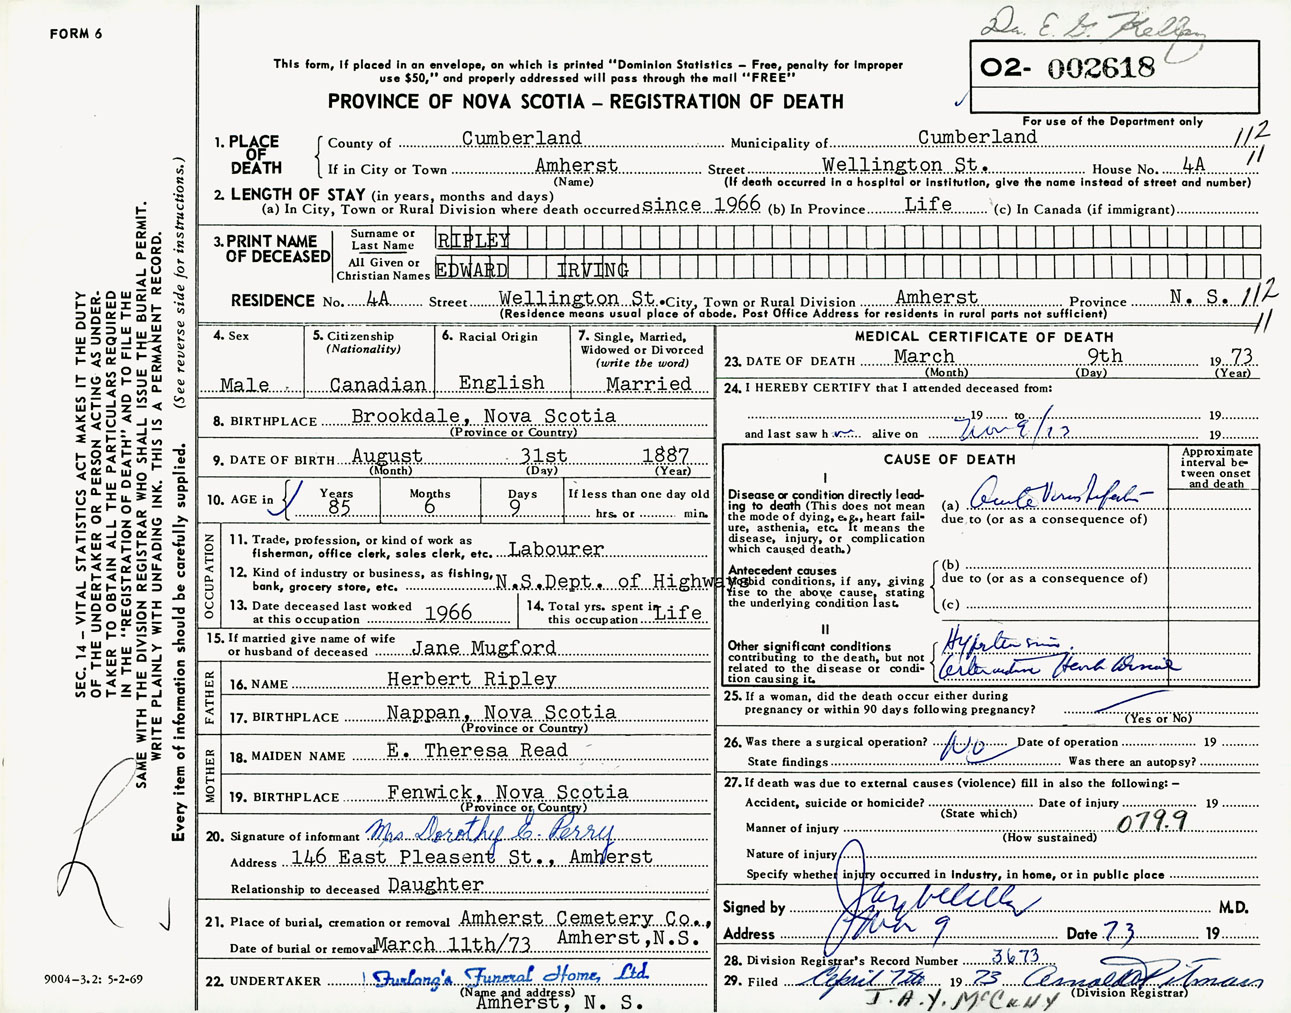 FORM 6
Dr. E. G. Kelley
This form, if placed in an envelope, on which is printed "Dominion Statistics – Free, penalty for improper
use $50," and properly addressed will pass through the mail "FREE"
PROVINCE OF NOVA SCOTIA – REGISTRATION OF DEATH
O2- 002618
For use of the Department only
1. PLACE OF DEATH
County of Cumberland Municipality of Cumberland 112
If in City or Town Amherst Street Wellington St. House No. 4A 11
(Name) (If death occurred in a hospital or institution, give the name instead of street and number)
2. LENGTH OF STAY (in years, months and days)
(a) In City, Town or Rural Division where death occurred since 1966 (b) In Province Life (c) In Canada (if immigrant)
3. PRINT NAME OF DECEASED
Surname or Last Name RIPLEY
All Given or Christian Names EDWARD IRVING
RESIDENCE No. 4A Street Wellington St. City, Town or Rural Division Amherst Province N. S. 112
(Residence means usual place of abode. Post Office Address for residents in rural parts not sufficient) 11
4. Sex
Male
5. Citizenship
(Nationality)
Canadian
6. Racial Origin
English
7. Single, Married,
Widowed or Divorced
(write the word)
Married
8. BIRTHPLACE Brookdale, Nova Scotia
(Province or Country)
9. DATE OF BIRTH August 31st 1887
(Month) (Day) (Year)
10. AGE in
Years 85
Months 6
Days 9
If less than one day old
hrs. or min.
OCCUPATION
11. Trade, profession, or kind of work as
fisherman, office clerk, sales clerk, etc. Labourer
12. Kind of industry or business, as fishing,
bank, grocery store, etc. N.S.Dept. of Highways
13. Date deceased last worked
at this occupation 1966
14. Total yrs. spent in
this occupation Life
15. If married give name of wife
or husband of deceased Jane Mugford
FATHER
16. NAME Herbert Ripley
17. BIRTHPLACE Nappan, Nova Scotia
(Province or Country)
MOTHER
18. MAIDEN NAME E. Theresa Read
19. BIRTHPLACE Fenwick, Nova Scotia
(Province or Country)
20. Signature of informant Mrs Dorothy E. Perry
Address 146 East Pleasent St., Amherst
Relationship to deceased Daughter
21. Place of burial, cremation or removal Amherst Cemetery Co.,
Date of burial or removal March 11th/73 Amherst,N.S.
22. UNDERTAKER Furlong's Funeral Home, Ltd.
(Name and address)
Amherst, N. S.
MEDICAL CERTIFICATE OF DEATH
23. DATE OF DEATH March 9th 1973
(Month) (Day) (Year)
24. I HEREBY CERTIFY that I attended deceased from:
19 to 19
and last saw h alive on 19
CAUSE OF DEATH
Approximate
interval be-
tween onset
and death
I
Disease or condition directly lead-
ing to death (This does not mean
the mode of dying, e.g., heart fail-
ure, asthenia, etc. It means the
disease, injury, or complication
which caused death.)
(a) Acute Virus Infection
due to (or as a consequence of)
Antecedent causes
Morbid conditions, if any, giving
rise to the above cause, stating
the underlying condition last.
(b)
due to (or as a consequence of)
(c)
II
Other significant conditions
contributing to the death, but not
related to the disease or condi-
tion causing it.
Hypertension
Heart Disease
25. If a woman, did the death occur either during
pregnancy or within 90 days following pregnancy?
(Yes or No)
26. Was there a surgical operation? No Date of operation 19
State findings Was there an autopsy?
27. If death was due to external causes (violence) fill in also the following: –
Accident, suicide or homicide? Date of injury 19
(State which)
Manner of injury 079.9
(How sustained)
Nature of injury
Specify whether injury occurred in industry, in home, or in public place
Signed by M.D.
Address Mar 9 Date 73 19
28. Division Registrar's Record Number 3673
29. Filed April 7th 1973 Arnold Pitman
(Division Registrar)
SEC. 14 – VITAL STATISTICS ACT MAKES IT THE DUTY
OF THE UNDERTAKER OR PERSON ACTING AS UNDER-
TAKER TO OBTAIN ALL THE PARTICULARS REQUIRED
IN THE "REGISTRATION OF DEATH" AND TO FILE THE
SAME WITH THE DIVISION REGISTRAR WHO SHALL ISSUE THE BURIAL PERMIT.
WRITE PLAINLY WITH UNFADING INK. THIS IS A PERMANENT RECORD.
Every item of information should be carefully supplied. (See reverse side for instructions.)
9004–3.2: 5-2-69